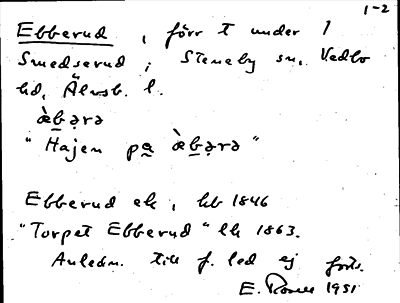 1-2
Ebberud, förr t under 1
Smedserud i Steneby sn, Vedbo
hd, Älvsb. l.
"Hajen på
Ebberud ek, hb 1846
"Torpet Ebberud" lk 1863.
Anledn. till f. led ej
E. 1951